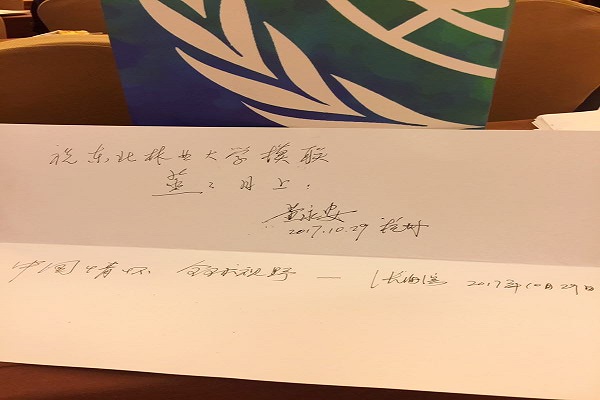 祝东北林业大学模联
蒸々日上.
黄永安
2017.10.29
中国情怀 全球视野 — 张海滨 2017年10月29日